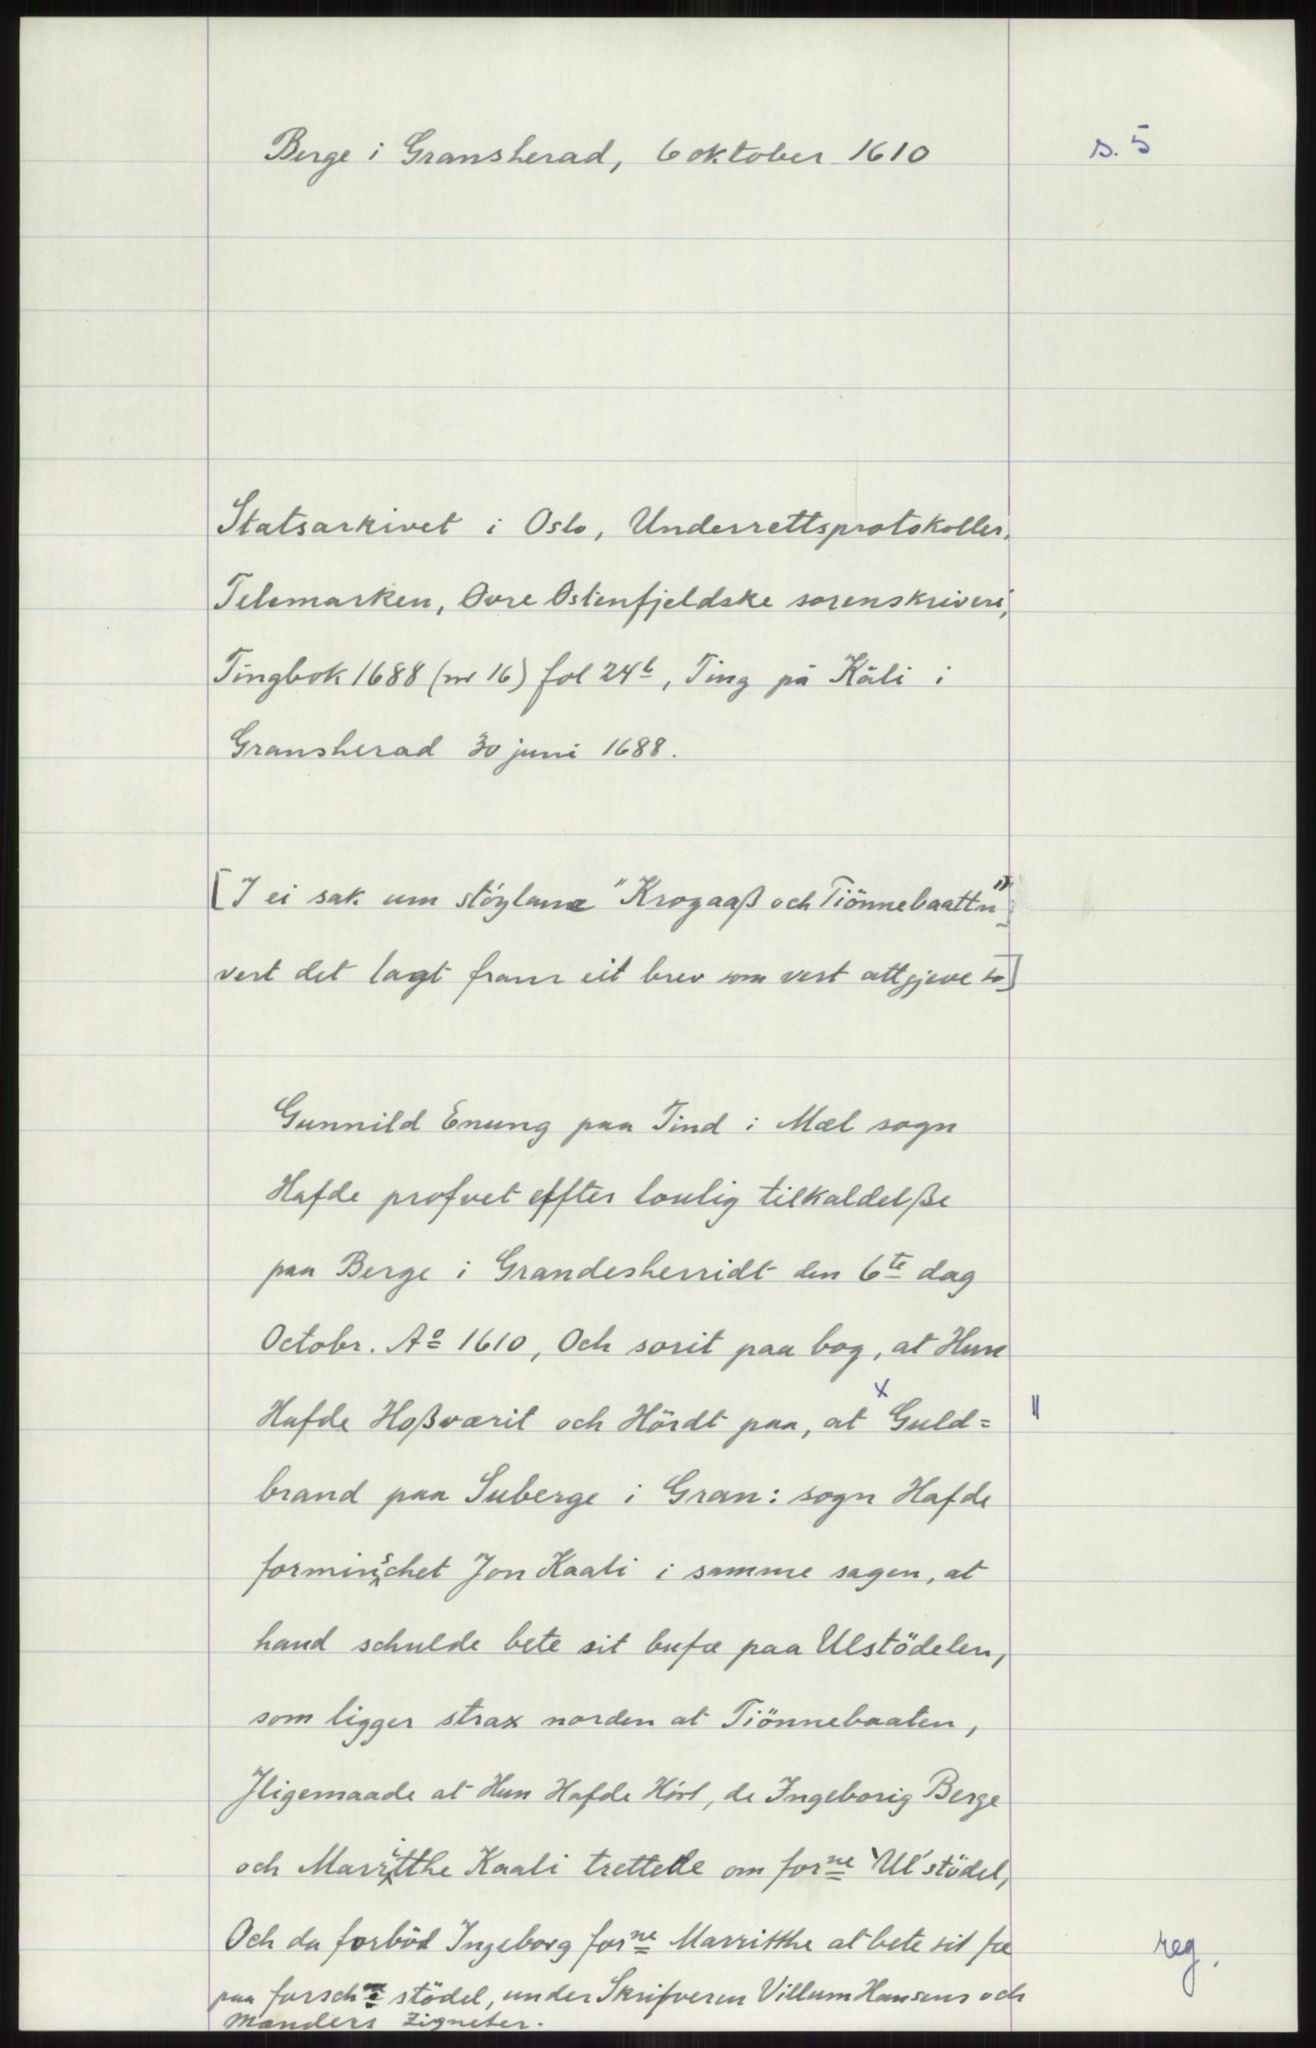 Berge i Gransherad, 6 oktober 1610
s. 5
Statsarkivet i Oslo, Underrettsprotokoller,
Telemarken, Øvre Østenfjeldske sorenskriveri,
Tingbok 1688 (nr 16) fol 24b, Ting på Kåli i
Gransherad 30 juni 1688.
[I ei sak um stöylane "Krogaaß och Tiönnebaattn"
vert det lagt fram eit brev som vert attgjeve so]
Gunnild Enung paa Tind i Mæl sogn
Hafde profvet effter loulig tilkaldelße
paa Berge i Grandesherridt den 6te dag
Octobr. Ao 1610, Och sorit paa bog, at Hun
Hafde Hoßværit och Hördt paa, at x Guld= "
brand paa Suberge i Gran: sogn Hafde
forminschet Jon Kaali i samme sagen, at
hand schulde bete sit bufæ paa Ulstödelen,
som ligger strax norden at Tiönnebaaten,
Jligemaade at Hun Hafde Hört, de Ingeborig Berge
och Marritthe Kaali trettede om forne 'Ul'stödel,
Och da forböd Ingeborg forne Marritthe at bete sit fæ
reg.
paa forschne stödel, under Skrifveren Villum Hansens och
Mænders Zigneter.